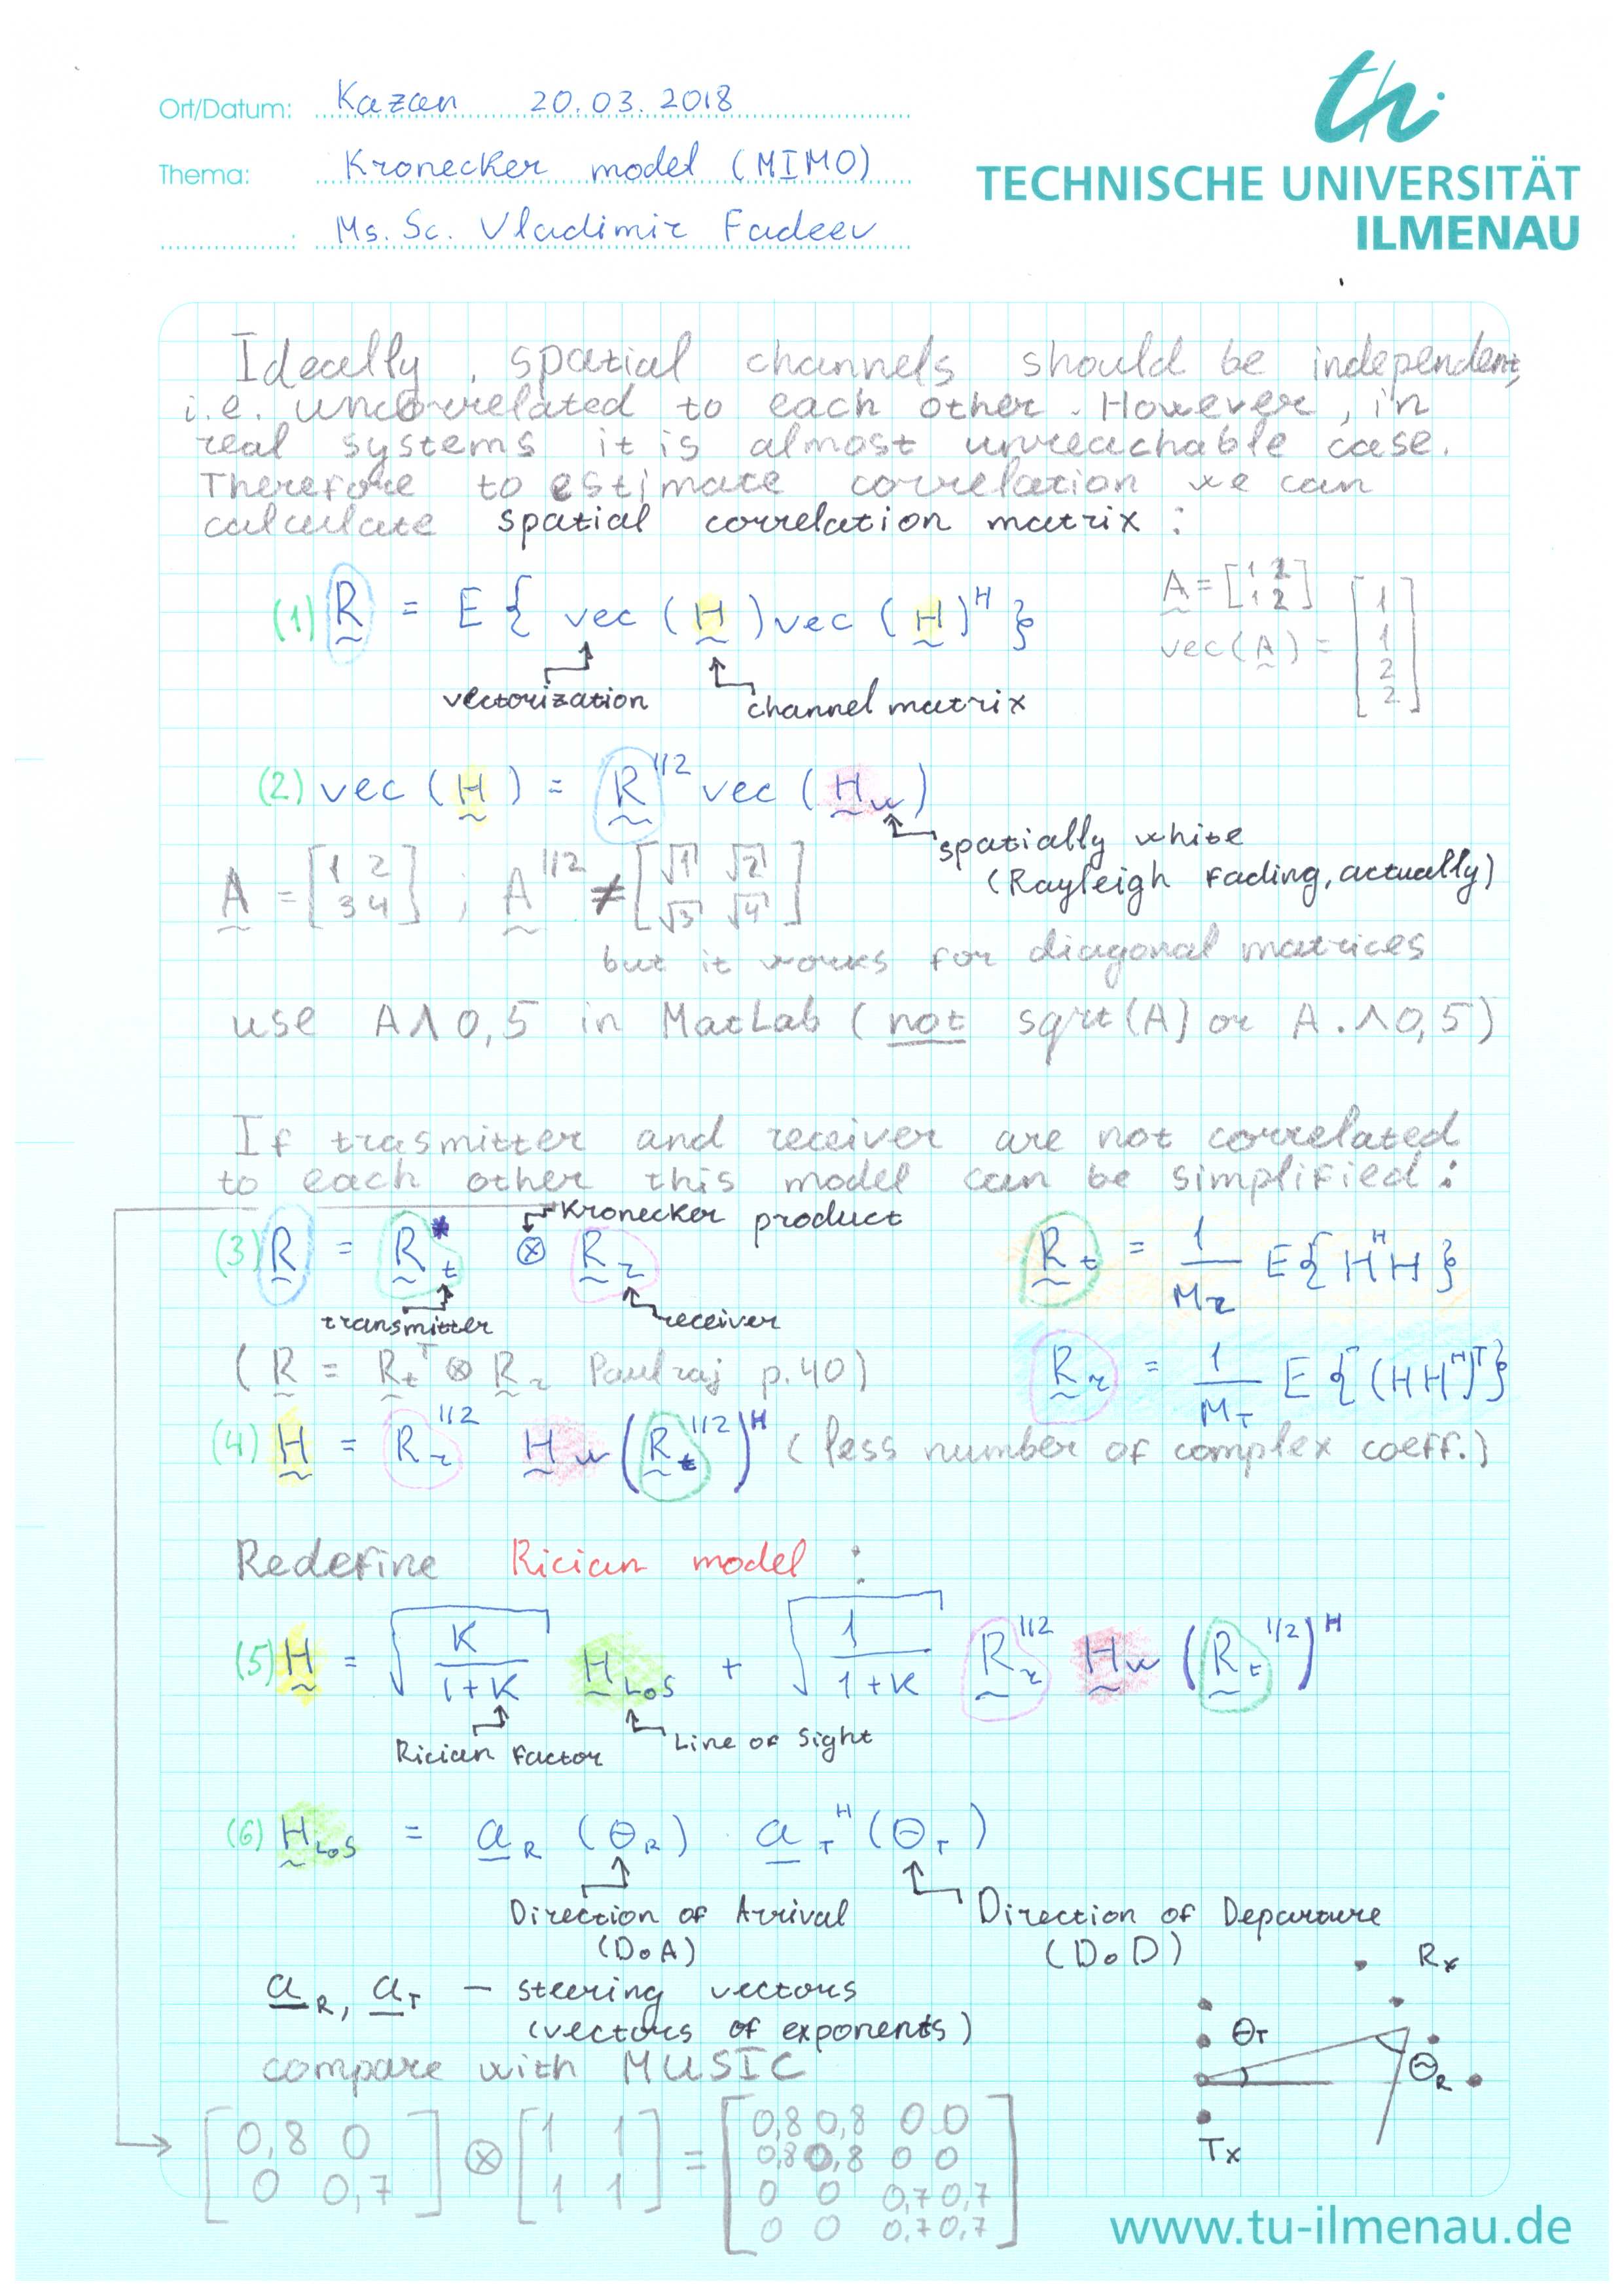 Ort/Datum: Kazan 20.03.2018
Thema: Kronecker model (MIMO)
Ms. Sc. Vladimir Fadeev
th
TECHNISCHE UNIVERSITÄT
ILMENAU
Ideally, spatial channels should be independent,
i.e. uncorrelated to each other. However, in
real systems it is almost unreachable case.
Therefore to estimate correlation we can
calculate spatial correlation matrix :
(1) R = E { vec (H) vec (H)^H }
vectorization
channel matrix
A = [1 2; 1 2]
vec(A) = [1; 1; 2; 2]
(2) vec (H) = R^1/2 vec (H_w)
spatially white
(Rayleigh Fading, actually)
A = [1 2; 3 4] ; A^1/2 ≠ [√1 √2; √3 √4]
but it works for diagonal matrices
use A^0,5 in MatLab (not sqrt(A) or A.^0,5)
If trasmitter and receiver are not correlated
to each other this model can be simplified :
Kronecker product
(3) R = R_t^* ⊗ R_r
transmitter
receiver
R_t = 1/M_R E{H^H H}
(R = R_t^T ⊗ R_r Paulraj p.40)
R_r = 1/M_T E{(HH^H)^T}
(4) H = R_r^1/2 H_w (R_t^1/2)^H (less number of complex coeff.)
Redefine Rician model :
(5) H = √(K/(1+K)) H_LoS + √(1/(1+K)) R_r^1/2 H_w (R_t^1/2)^H
Rician Factor
Line of Sight
(6) H_LoS = a_R (Θ_R) a_T^H (Θ_T)
Direction of Arrival
(DoA)
Direction of Departure
(DoD)
a_R, a_T – steering vectors
(vectors of exponents)
compare with MUSIC
Rx
Θ_T
Θ_R
Tx
[0,8 0; 0 0,7] ⊗ [1 1; 1 1] = [0,8 0,8 0 0; 0,8 0,8 0 0; 0 0 0,7 0,7; 0 0 0,7 0,7]
www.tu-ilmenau.de